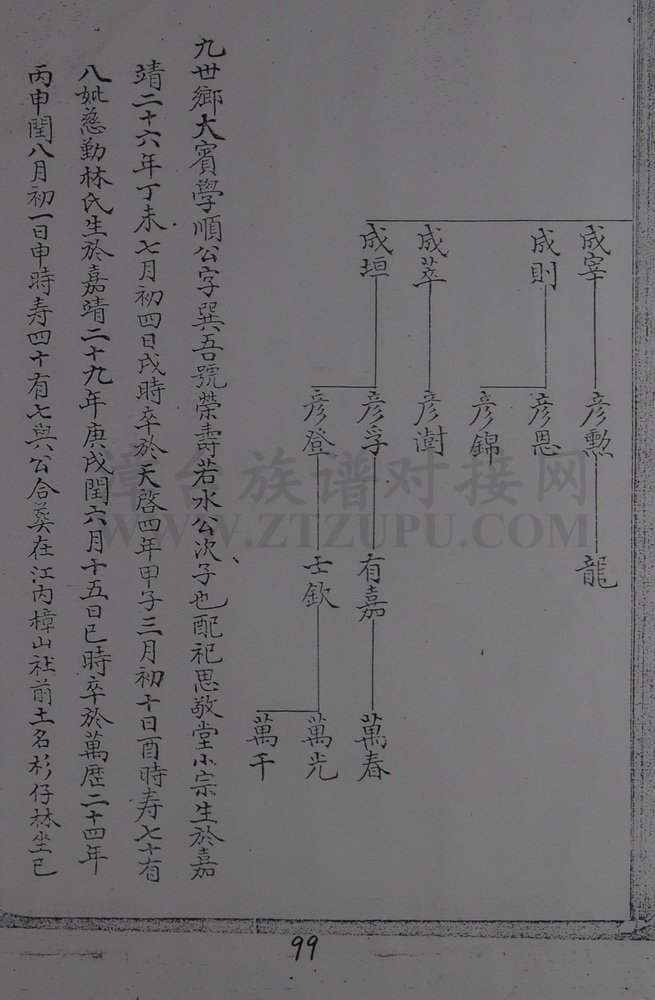 成宰 彥勳 龍
成則 彥思
彥錦
成萃 彥澍
成垣 彥孚 有嘉 萬春
彥登 士欽 萬光
萬千
九世鄉大賓學順公字巽吾號榮壽若水公次子也配祀思敬堂小宗生於嘉
靖二十六年丁未七月初四日戌時卒於天啓四年甲子三月初十日酉時寿七十有
八妣慈勤林氏生於嘉靖二十九年庚戌閏六月十五日巳時卒於萬歷二十四年
丙申閏八月初一日申時寿四十有七與公合葬在江内樟山社前土名杉仔林坐巳
漳台族谱对接网
WWW.ZTZUPU.COM
99